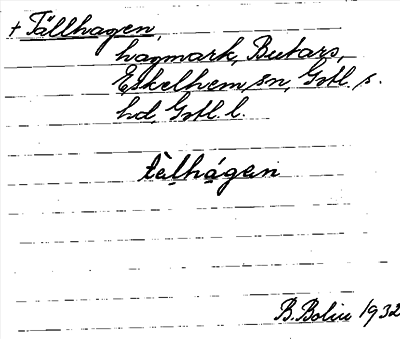 + Tällhagen,
hagmark, Butars,
Eskelhem sn, Gotl. s.
hd, Gotl. l.
tèlhágen
B. Bolin 1932